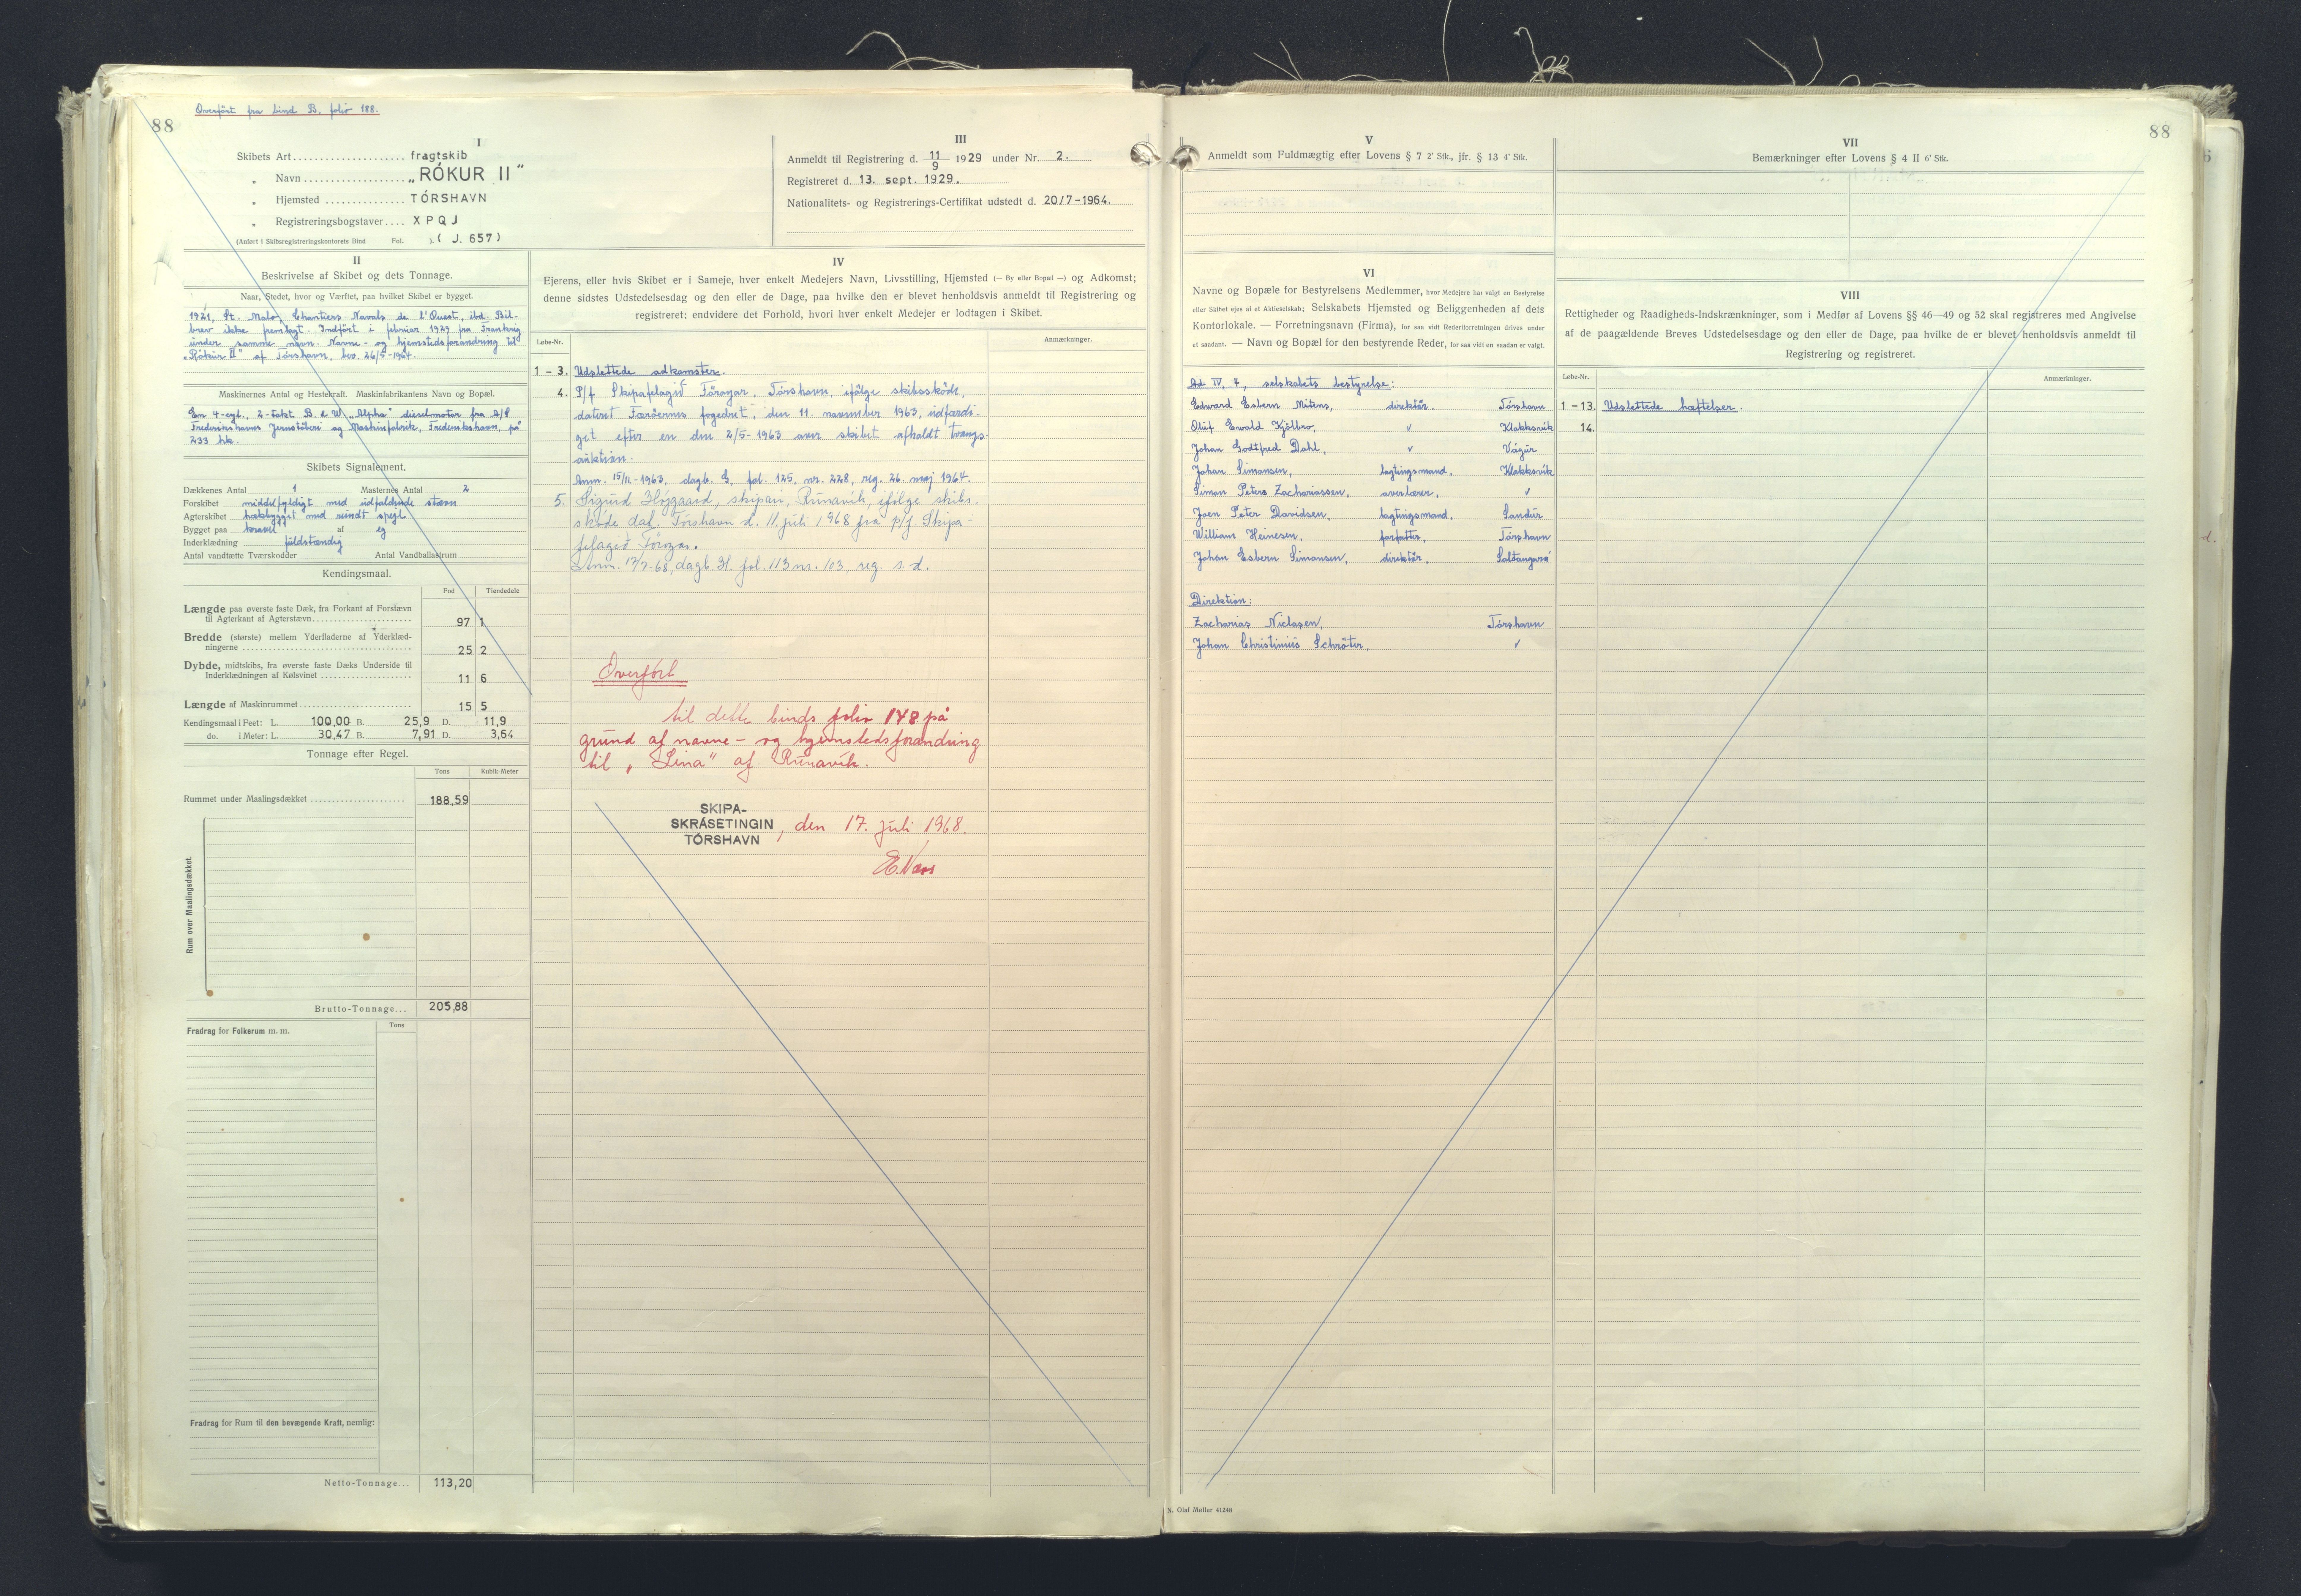 Overført fra bind B, folio 188.
88
I
Skibets Art.................... fragtskib
„ Navn .................. „RÓKUR II“
„ Hjemsted .............. TÓRSHAVN
„ Registreringsbogstaver.... XPQJ
(Anført i Skibsregistreringskontorets Bind Fol. ). ( J. 657)
III
Anmeldt til Registrering d. 11/9 1929 under Nr. 2.
Registreret d. 13. sept. 1929.
Nationalitets- og Registrerings-Certifikat udstedt d. 20/7-1964.
II
Beskrivelse af Skibet og dets Tonnage.
Naar, Stedet, hvor og Værftet, paa hvilket Skibet er bygget.
1921, St. Malo, Chantiers Navals de l'Ouest, ibd. Bil-
brev ikke fremlagt. Indført i februar 1929 fra Frankrig
under samme navn. Navne- og hjemstedsforandring til
„Rókur II“ af Tórshavn, bev. 26/5-1964.
Maskinernes Antal og Hestekraft. Maskinfabrikantens Navn og Bopæl.
En 4-cyl., 2-takt B. & W. „Alpha“ dieselmotor fra A/S
Frederikshavns Jernstøberi og Maskinfabrik, Frederikshavn, på
233 hk.
Skibets Signalement.
Dækkenes Antal 1 Masternes Antal 2
Forskibet middelfyldigt med udfaldende stævn
Agterskibet hækbygget med rundt spejl
Bygget paa kravel af eg
Inderklædning fuldstændig
Antal vandtætte Tværskodder Antal Vandballastrum
Kendingsmaal.
Fod Tiendedele
Længde paa øverste faste Dæk, fra Forkant af Forstævn
til Agterkant af Agterstævn........................ 97 1
Bredde (største) mellem Yderfladerne af Yderklæd-
ningerne ........................................ 25 2
Dybde, midtskibs, fra øverste faste Dæks Underside til
Inderklædningen af Kølsvinet ...................... 11 6
Længde af Maskinrummet........................... 15 5
Kendingsmaal i Feet: L. 100,00 B. 25,9 D. 11,9
do. i Meter: L. 30,47 B. 7,91 D. 3,64
Tonnage efter Regel.
Tons Kubik-Meter
Rummet under Maalingsdækket ...................... 188,59
Rum over Maalingsdækket.
Brutto-Tonnage... 205,88
Fradrag for Folkerum m. m.
Tons
Fradrag for Rum til den bevægende Kraft, nemlig:
Netto-Tonnage... 113,20
IV
Ejerens, eller hvis Skibet er i Sameje, hver enkelt Medejers Navn, Livsstilling, Hjemsted (— By eller Bopæl —) og Adkomst;
denne sidstes Udstedelsesdag og den eller de Dage, paa hvilke den er blevet henholdsvis anmeldt til Registrering og
registreret; endvidere det Forhold, hvori hver enkelt Medejer er lodtagen i Skibet.
Løbe-Nr.
Anmærkninger.
1 – 3. Udslettede adkomster.
4. P/f Skipafelagið Føroyar, Tórshavn, ifølge skibsskøde,
dateret Færøernes fogedret, den 11. november 1963, udfærdi-
get efter en den 2/5-1963 over skibet afholdt tvangs-
auktion.
Anm. 15/11-1963, dagb. G, fol. 125, nr. 228, reg. 26. maj 1964.
5. Sigurd Højgaard, skipari, Runavík, ifølge skibs-
skøde dat. Tórshavn d. 11. juli 1968 fra p/f. Skipa-
felagið Føroyar.
Anm. 17/7-68, dagb. H. fol. 113 nr. 103, reg. s. d.
Overført
til dette binds folio 148 på
grund af navne- og hjemstedsforandring
til „Lina“ af Runavík.
SKIPA-
SKRÁSETINGIN
TÓRSHAVN
, den 17. juli 1968.
V
Anmeldt som Fuldmægtig efter Lovens § 7 2' Stk., jfr. § 13 4' Stk.
VI
Navne og Bopæle for Bestyrelsens Medlemmer, hvor Medejere har valgt en Bestyrelse
eller Skibet ejes af et Aktieselskab; Selskabets Hjemsted og Beliggenheden af dets
Kontorlokale. — Forretningsnavn (Firma), for saa vidt Rederiforretningen drives under
et saadant. — Navn og Bopæl for den bestyrende Reder, for saa vidt en saadan er valgt.
Ad IV, 4, selskabets bestyrelse:
Edward Esbern Mitens, direktør. Tórshavn
Oluf Ewald Kjølbro, " Klakksvík
Johan Godtfred Dahl, " Vágur
Johan Simonsen, lagtingsmand, Klakksvík
Simon Peter Zachariassen, overlærer, "
Joen Peter Davidsen, lagtingsmand, Sandur
William Heinesen, forfatter, Tórshavn
Johan Esbern Simonsen, direktør, Saltangará
Direktion:
Zacharias Niclasen, Tórshavn
Johan Christinius Schrøter, "
88
VII
Bemærkninger efter Lovens § 4 II 6' Stk.
VIII
Rettigheder og Raadigheds-Indskrænkninger, som i Medfør af Lovens §§ 46—49 og 52 skal registreres med Angivelse
af de paagældende Breves Udstedelsesdage og den eller de Dage, paa hvilke de er blevet henholdsvis anmeldt til
Registrering og registreret.
Løbe-Nr.
Anmærkninger.
1 – 13. Udslettede hæftelser.
14.
N. Olaf Møller 41248